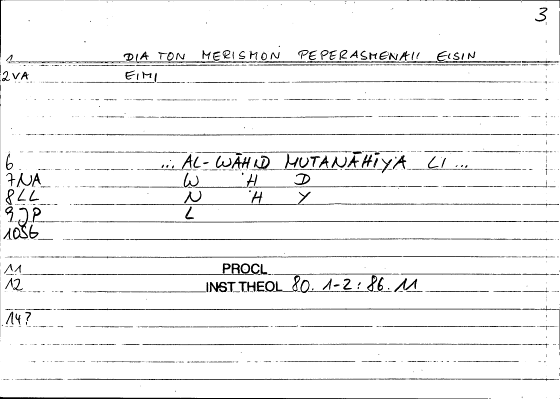 3
1 DIA TON MERISMON PEPERASMENAI! EISIN
2VA EIMI
6 ... AL-WĀḤID MUTANĀHIYA LI ...
7NA W Ḥ D
8LL N H Y
9JP L
10SG
11 PROCL
12 INST THEOL 80. 1-2 : 86. 11
14?